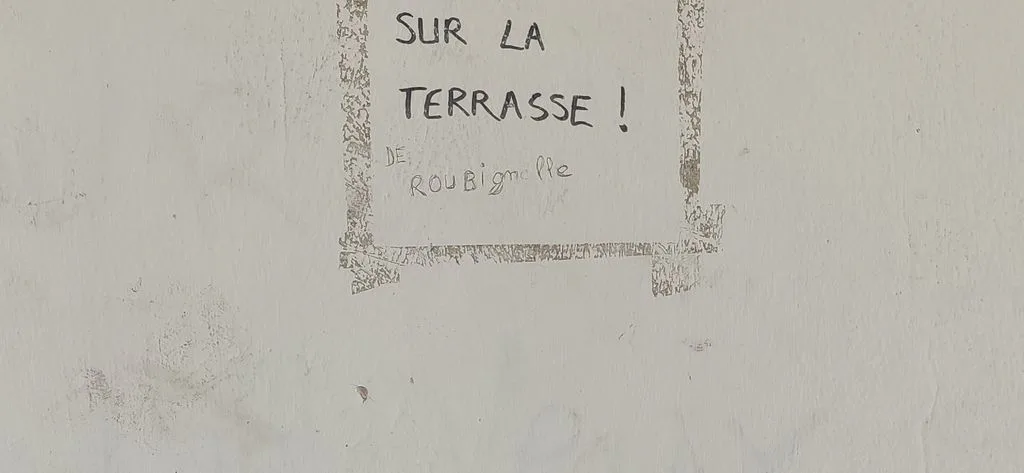 SUR LA
TERRASSE !
DE
ROUBignolle